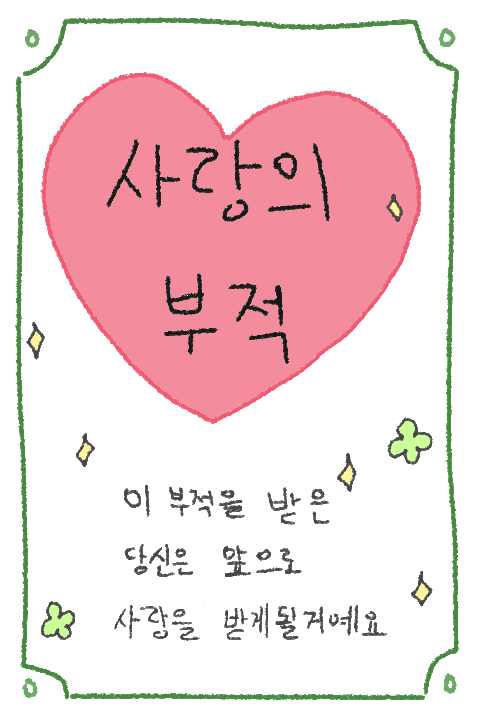 사랑의
부적
이 부적을 받은
당신은 앞으로
사랑을 받게될거예요